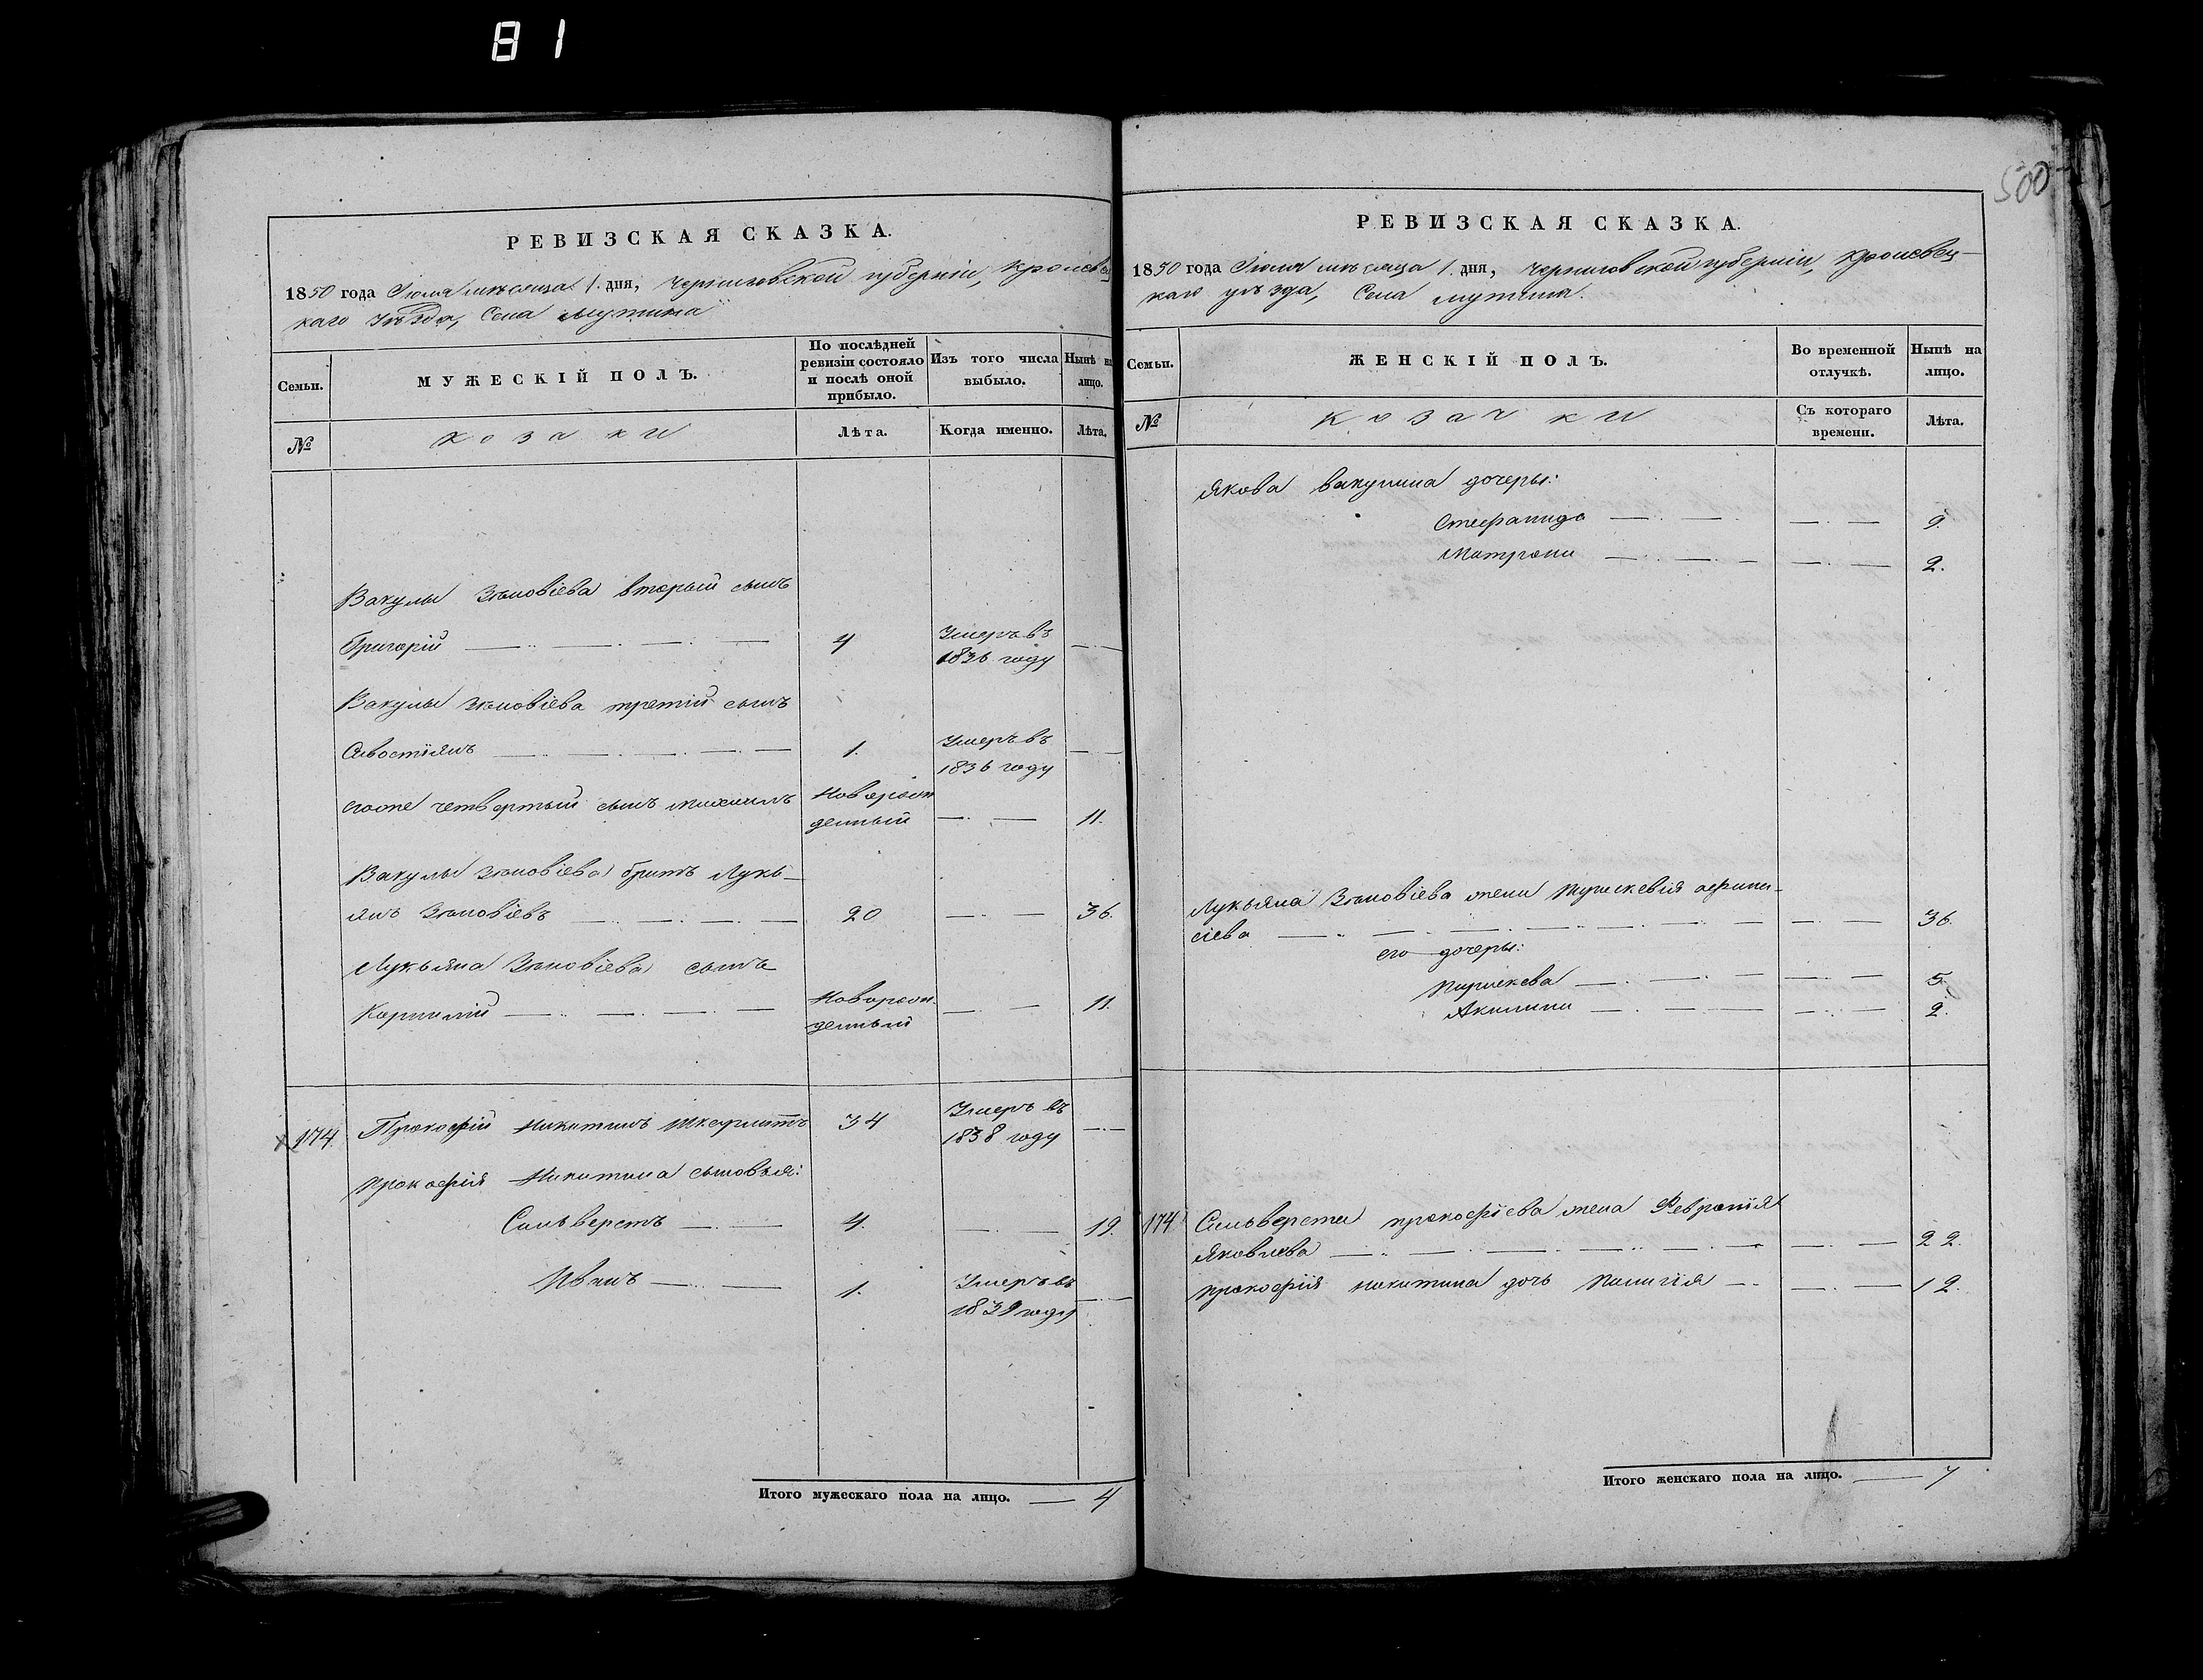 81
500
РЕВИЗСКАЯ СКАЗКА.
1850 года Июля месяца 1. дня, Черниговской губерніи, Кролевец
каго уѣзда, Села Мутина
Семьи.
МУЖЕСКІЙ ПОЛЪ.
По послѣдней
ревизіи состояло
и послѣ оной
прибыло.
Изъ того числа
выбыло.
Нынѣ на
лицо.
№
козаки
Лѣта.
Когда именно.
Лѣта.
Вакулы Зѣновіева вторый сынъ
Григорій 4 Умеръ въ
1836 году
Вакулы Зѣновіева третій сынъ
Савостіянъ 1. Умеръ въ
1836 году
его же четвертый сынъ Михаилъ Новорож
денный 11.
Вакулы Зѣновіева братъ Лукь-
янъ Зѣновіевъ 20 36.
Лукьяна Зѣновіева сынъ
Корнилій Новорож-
денный 11.
174. Прокофій Никитинъ 34 Умеръ въ
1838 году
Прокофія Никитина сыновья:
Сильверстъ 4. 19.
Иванъ 1. Умеръ въ
1839 году
Итого мужескаго пола на лицо. 4
РЕВИЗСКАЯ СКАЗКА.
1850 года Июля месяца 1. дня, Черниговской губерніи, Кролевец-
каго уѣзда, Села Мутина.
Семьи.
ЖЕНСКІЙ ПОЛЪ.
Во временной
отлучкѣ.
Нынѣ на
лицо.
№
козачки
Съ котораго
времени.
Лѣта.
Якова Вакулина дочеры:
Стефанида 9.
Матрона 2.
Лукьяна Зѣновіева жена Параскевія Афана-
сіева 36.
его дочеры:
Параскева 5.
Акилина 2.
174 Сильверста Прокофіева жена Февронія
Яковлева 22.
Прокофія Никитина дочь Палагія 12.
Итого женскаго пола на лицо. 7